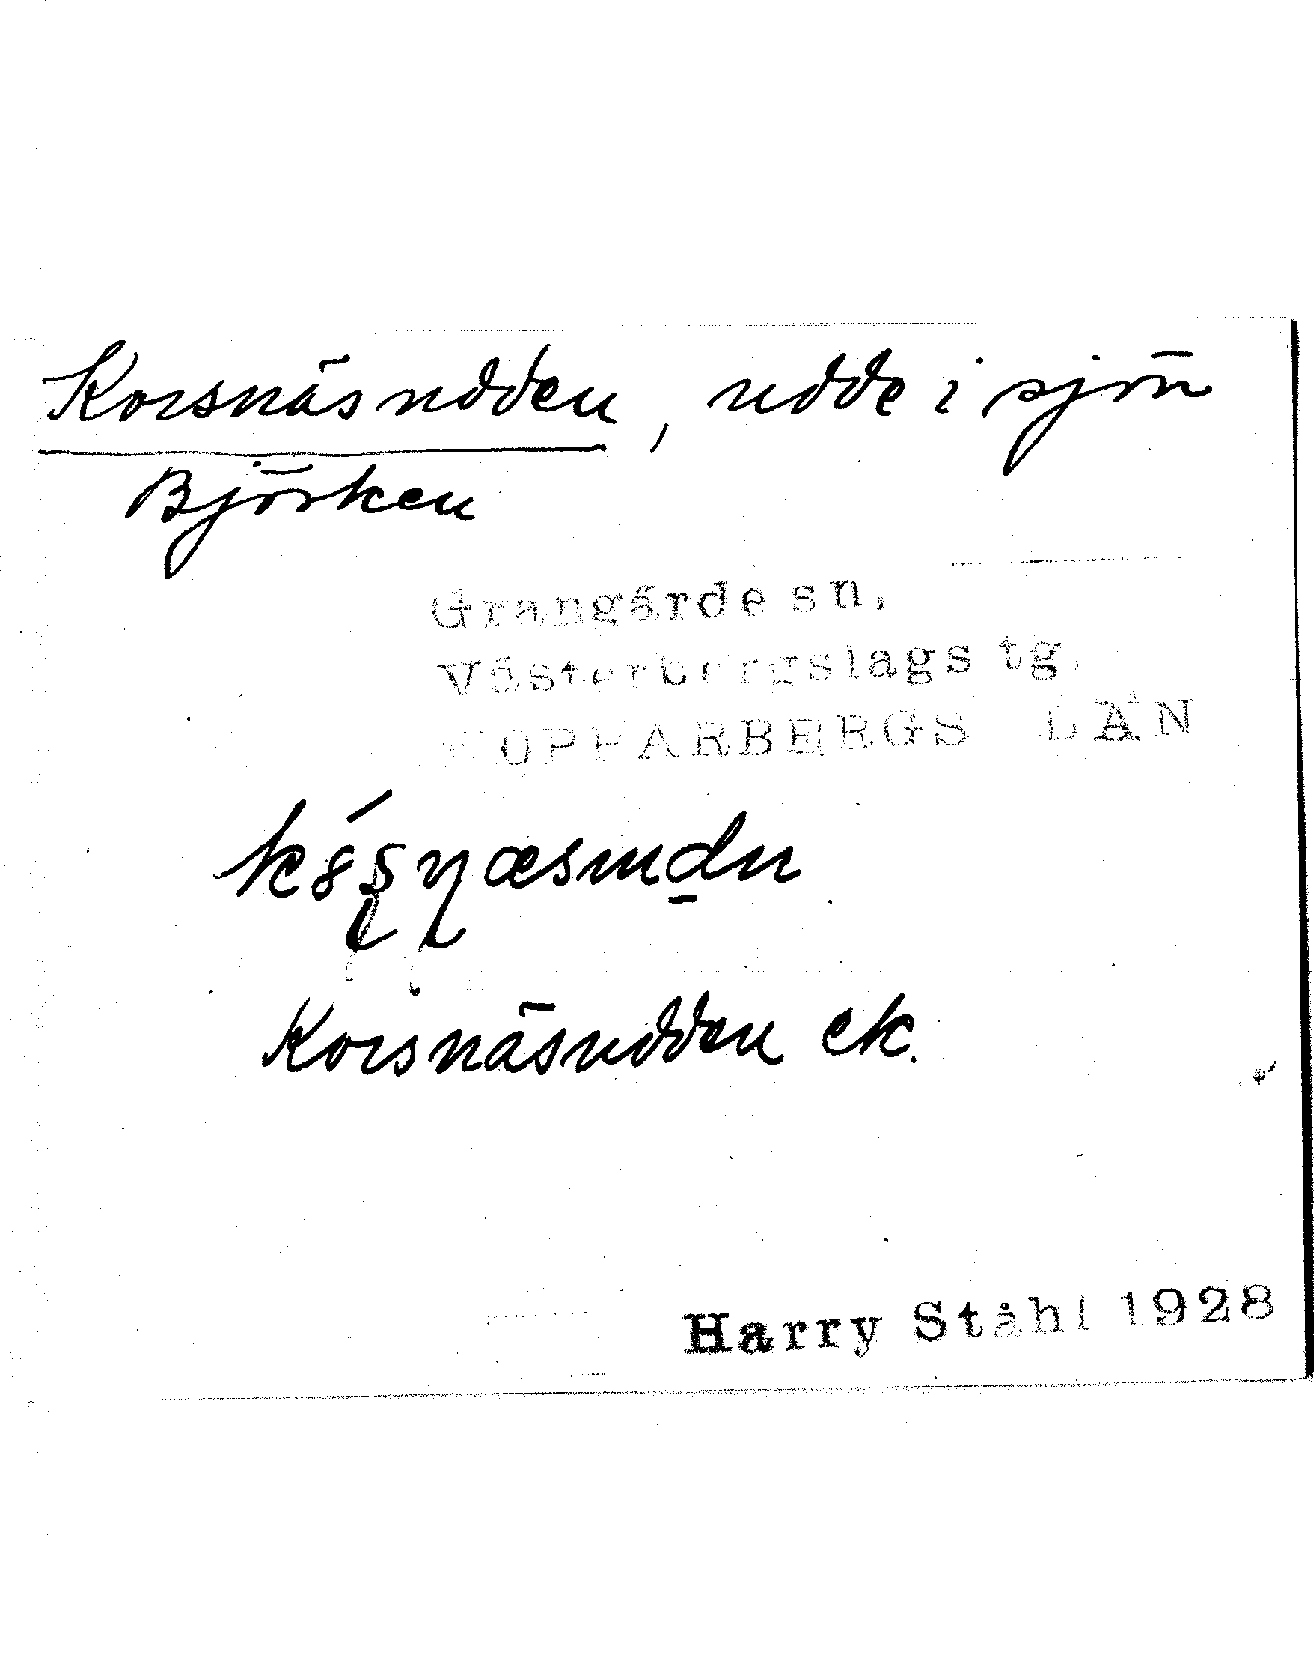 Korsnäsudden, udde i sjön
Björken
Grangärde sn.
Västerbergslags tg.
KOPPARBERGS LÄN
Korsnäsudden ek.
Harry Ståhl 1928